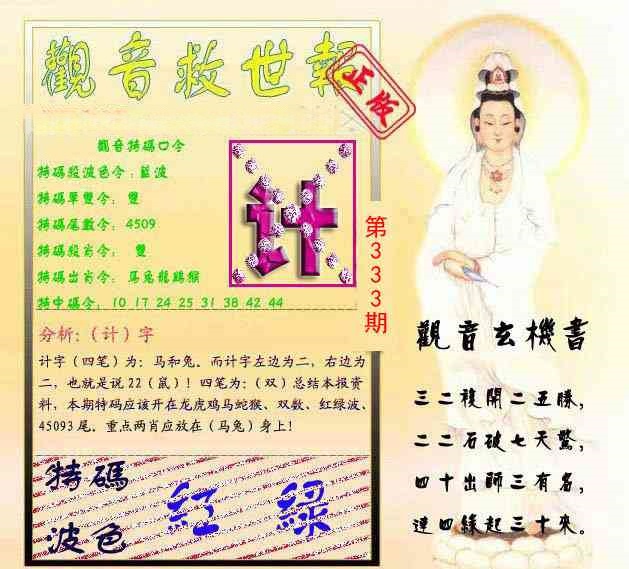 觀音救世報
正版
觀音特碼口令
特碼殺波色令:藍波
特碼單雙令: 雙
特碼尾數令: 4509
特碼殺肖令: 雙
特碼出肖令: 馬兔龍鷄猴
特中碼令: 10 17 24 25 31 38 42 44
计
第333期
分析:(计)字
计字(四笔)为: 马和兔。而计字左边为二, 右边为
二, 也就是说22(鼠)! 四笔为:(双)总结本报资
料, 本期特码应该开在龙虎鸡马蛇猴、双数、红绿波、
45093尾。重点两肖应放在(马兔)身上!
特碼
波色
紅 綠
觀音玄機書
三二複開二五勝,
二二石破七天驚,
四十出師三有名,
連四緣起三十來。